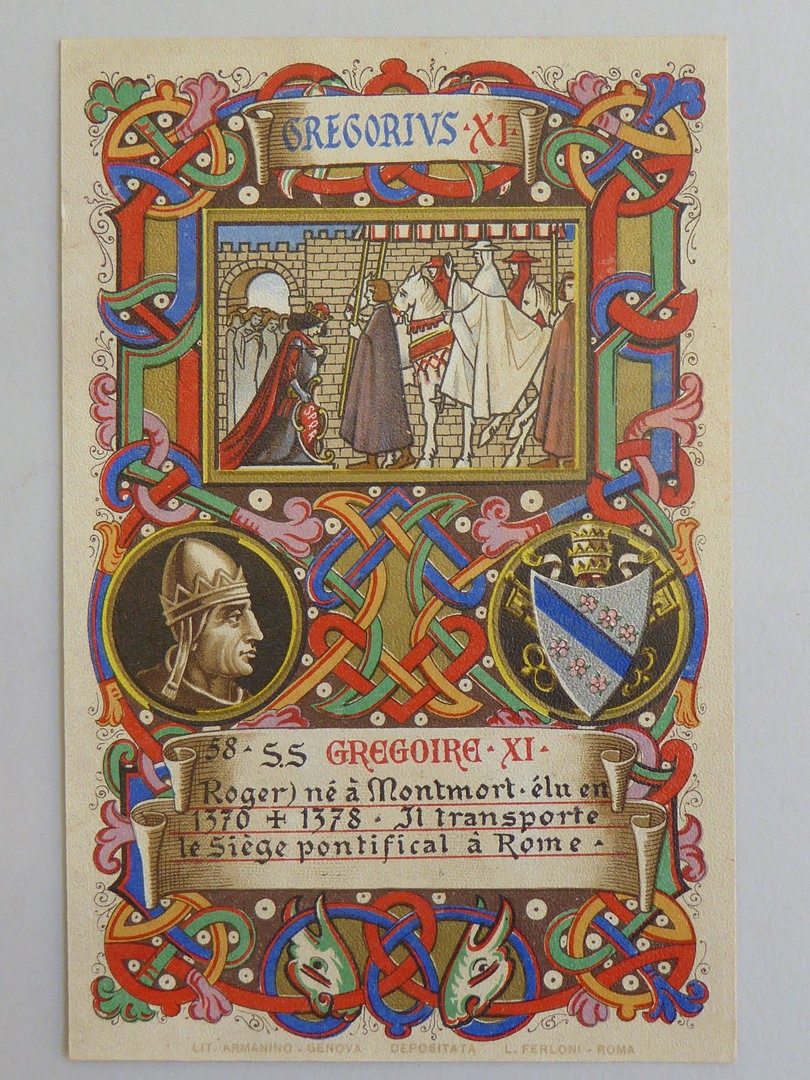 GREGORIVS·XI·
SPQR
58· S.S GREGOIRE·XI·
Roger) né à Montmort·élu en
1370 ✝ 1378 · Il transporte
le Siège pontifical à Rome ·
LIT. ARMANINO - GENOVA DEPOSITATA L. FERLONI - ROMA